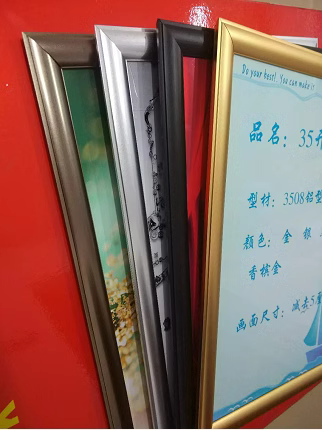 Do your best! You can make it
品名：35开
型材：3508铝型
颜色：金 银
香槟金
画面尺寸：减去5